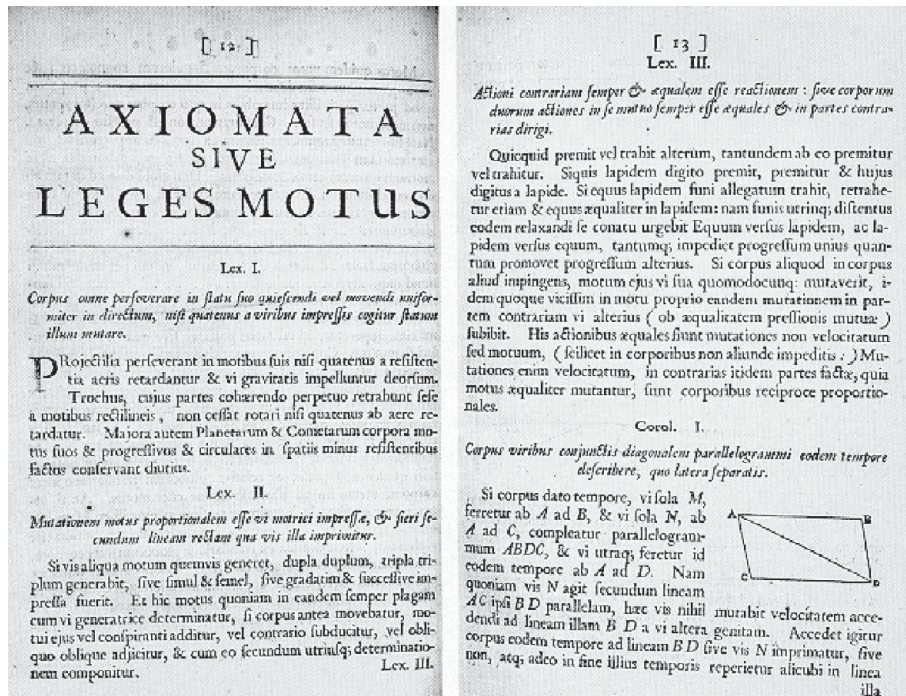 [ 12 ]
AXIOMATA
SIVE
LEGES MOTUS
Lex. I.
Corpus omne perseverare in statu suo quiescendi vel movendi unifor-
miter in directum, nisi quatenus a viribus impressis cogitur statum
illum mutare.
PRojectilia perseverant in motibus suis nisi quatenus a resisten-
tia aeris retardantur & vi gravitatis impelluntur deorsum.
Trochus, cujus partes cohærendo perpetuo retrahunt sese
a motibus rectilineis, non cessat rotari nisi quatenus ab aere re-
tardatur. Majora autem Planetarum & Cometarum corpora mo-
tus suos & progressivos & circulares in spatiis minus resistentibus
factos conservant diutius.
Lex. II.
Mutationem motus proportionalem esse vi motrici impressæ, & fieri se-
cundum lineam rectam qua vis illa imprimitur.
Si vis aliqua motum quemvis generet, dupla duplum, tripla tri-
plum generabit, sive simul & semel, sive gradatim & successive im-
pressa fuerit. Et hic motus quoniam in eandem semper plagam
cum vi generatrice determinatur, si corpus antea movebatur, mo-
tui ejus vel conspiranti additur, vel contrario subducitur, vel obli-
quo oblique adjicitur, & cum eo secundum utriusq; determinatio-
nem componitur.
Lex. III.
[ 13 ]
Lex. III.
Actioni contrariam semper & æqualem esse reactionem : sive corporum
duorum actiones in se mutuo semper esse æquales & in partes contra-
rias dirigi.
Quicquid premit vel trahit alterum, tantundem ab eo premitur
vel trahitur. Siquis lapidem digito premit, premitur & hujus
digitus a lapide. Si equus lapidem funi allegatum trahit, retrahe-
tur etiam & equus æqualiter in lapidem: nam funis utrinq; distentus
eodem relaxandi se conatu urgebit Equum versus lapidem, ac la-
pidem versus equum, tantumq; impediet progressum unius quan-
tum promovet progressum alterius. Si corpus aliquod in corpus
aliud impingens, motum ejus vi sua quomodocunq: mutaverit, i-
dem quoque vicissim in motu proprio eandem mutationem in par-
tem contrariam vi alterius ( ob æqualitatem pressionis mutuæ )
subibit. His actionibus æquales fiunt mutationes non velocitatum
sed motuum, ( scilicet in corporibus non aliunde impeditis : ) Mu-
tationes enim velocitatum, in contrarias itidem partes factæ, quia
motus æqualiter mutantur, sunt corporibus reciproce proportio-
nales.
Corol. I.
Corpus viribus conjunctis diagonalem parallelogrammi eodem tempore
describere, quo latera separatis.
Si corpus dato tempore, vi sola M,
ferretur ab A ad B, & vi sola N, ab
A ad C, compleatur parallelogram-
mum ABDC, & vi utraq; feretur id
eodem tempore ab A ad D. Nam
quoniam vis N agit secundum lineam
AC ipsi BD parallelam, hæc vis nihil mutabit velocitatem acce-
dendi ad lineam illam BD a vi altera genitam. Accedet igitur
corpus eodem tempore ad lineam BD sive vis N imprimatur, sive
non, atq; adeo in fine illius temporis reperietur alicubi in linea
illa
A
B
C
D